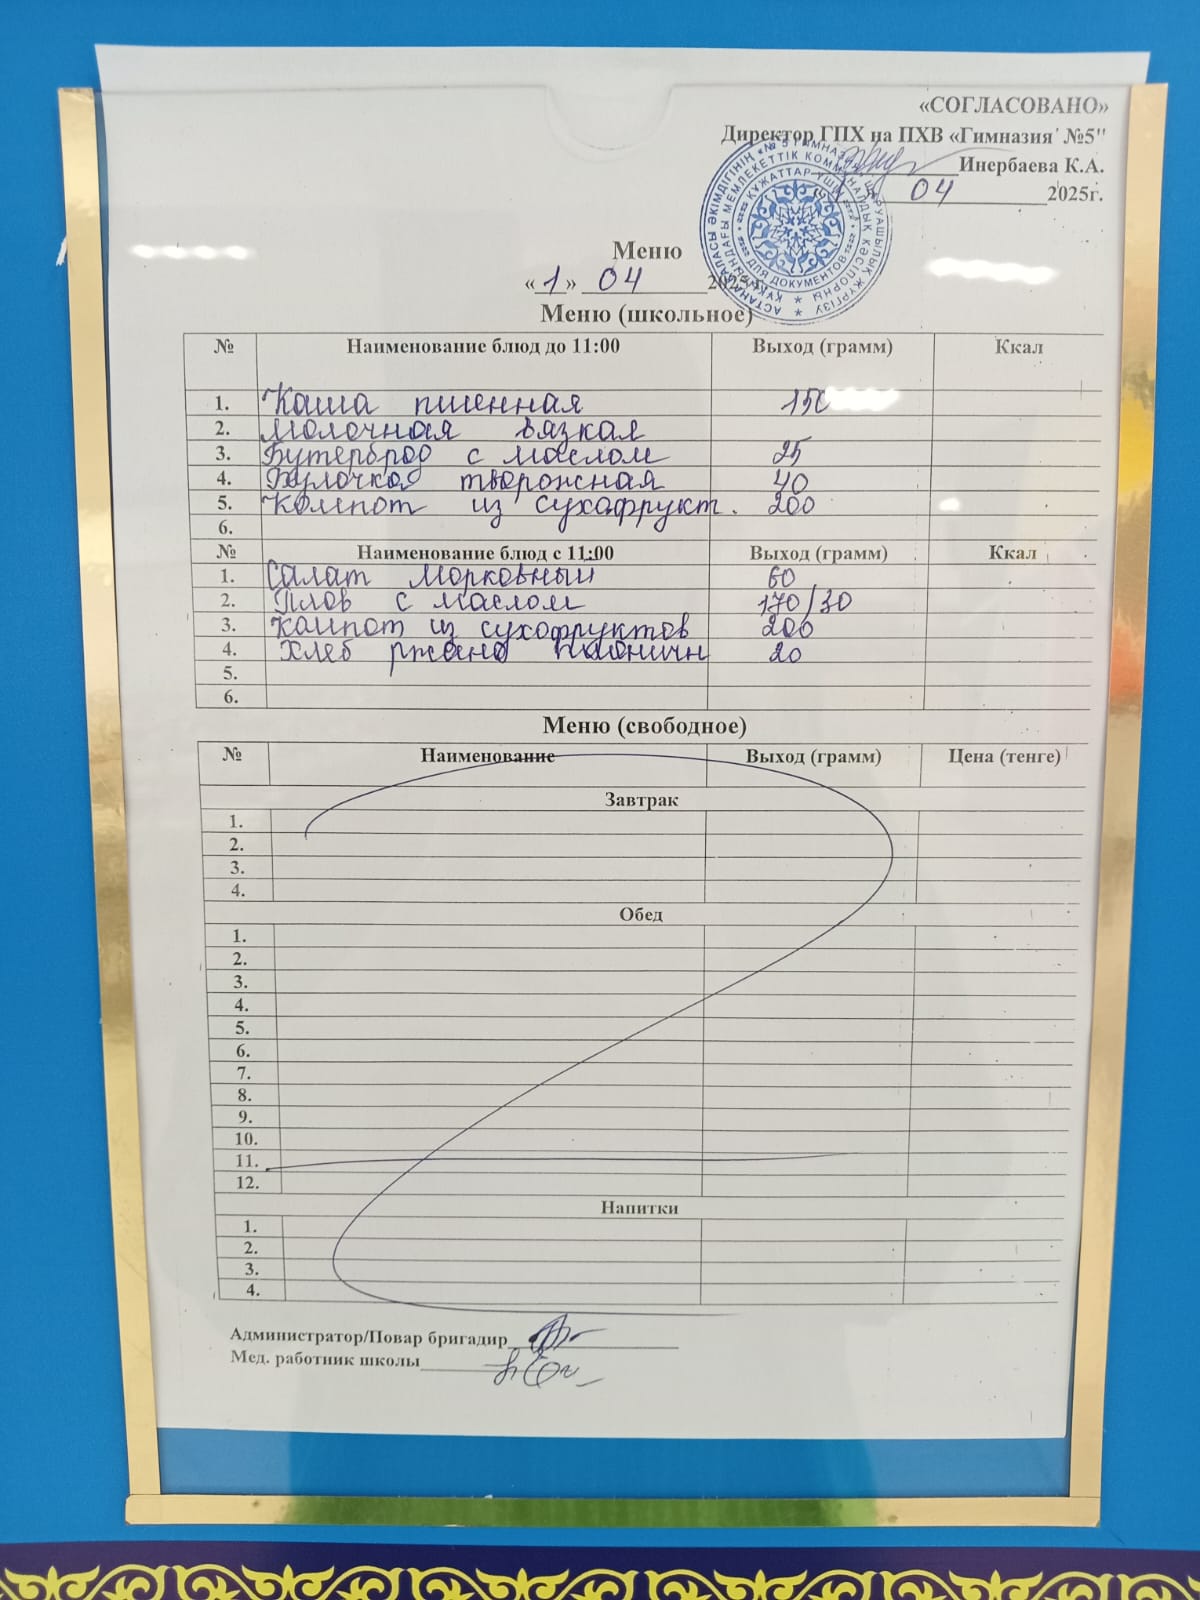 «СОГЛАСОВАНО»
Директор ГПХ на ПХВ «Гимназия №5"
Инербаева К.А.
04 2025г.
Меню
«1» 04 202
Меню (школьное)
№ Наименование блюд до 11:00 Выход (грамм) Ккал
1. Каша пшенная 150
2. молочная вязкая
3. Бутерброд с маслом 25
4. Булочка творожная 40
5. Компот из сухафрукт. 200
6.
№ Наименование блюд с 11:00 Выход (грамм) Ккал
1. Салат морковный 60
2. Плов с маслом 170/30
3. Компот из сухофруктов 200
4. Хлеб ржано 20
5.
6.
Меню (свободное)
№ Наименование Выход (грамм) Цена (тенге)
Завтрак
1.
2.
3.
4.
Обед
1.
2.
3.
4.
5.
6.
7.
8.
9.
10.
11.
12.
Напитки
1.
2.
3.
4.
Администратор/Повар бригадир
Мед. работник школы